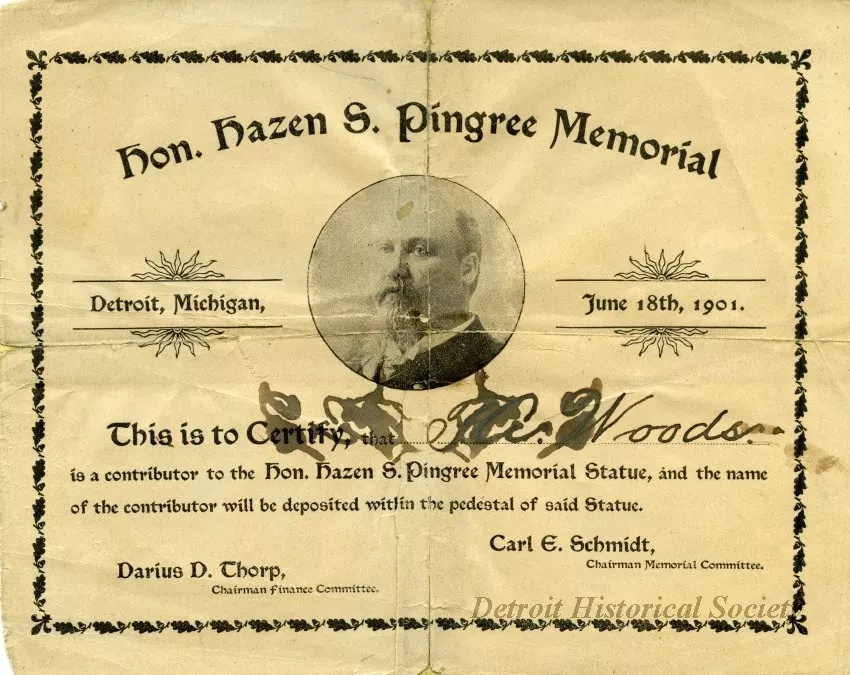 Hon. Hazen S. Pingree Memorial
Detroit, Michigan,
June 18th, 1901.
This is to Certify, that Woods.
is a contributor to the Hon. Hazen S. Pingree Memorial Statue, and the name
of the contributor will be deposited within the pedestal of said Statue.
Carl E. Schmidt,
Chairman Memorial Committee.
Darius D. Thorp,
Chairman Finance Committee.
Detroit Historical Societ